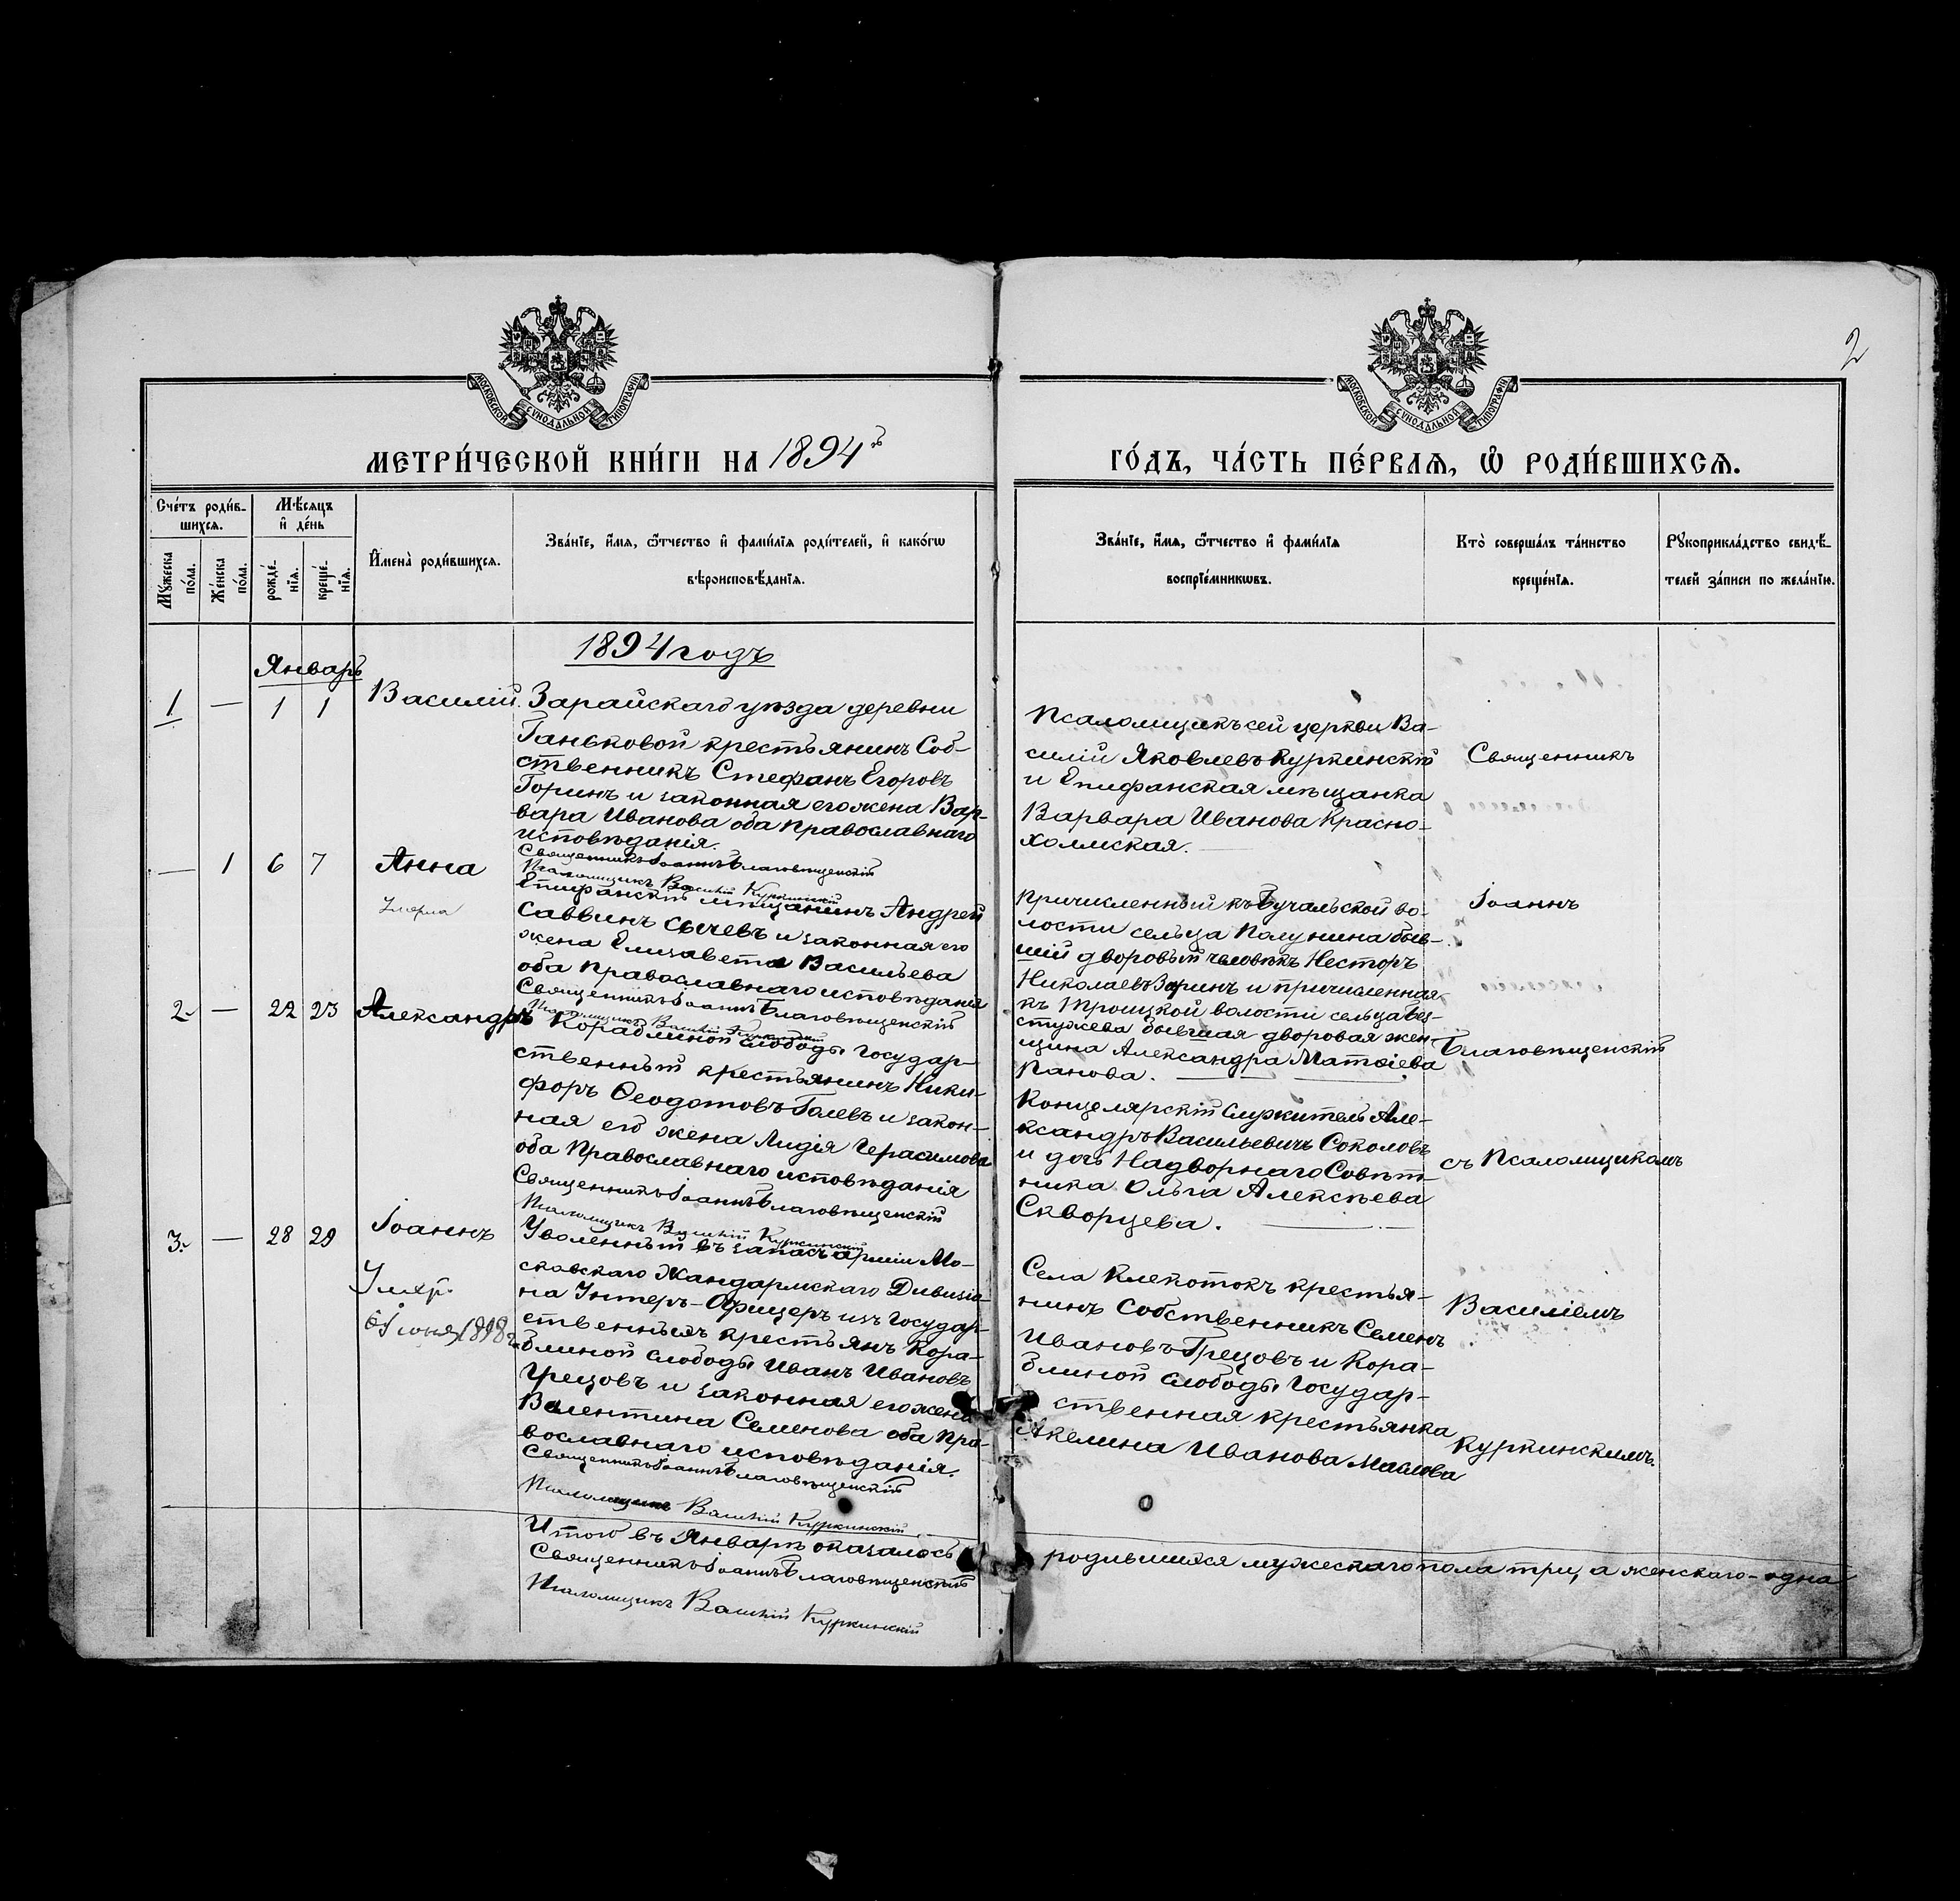 МОСКОВСКОЙ СѴНОДАЛЬНОЙ ТИПОГРАФІИ
МОСКОВСКОЙ СѴНОДАЛЬНОЙ ТИПОГРАФІИ
2
МЕТРИ́ЧЕСКОЙ КНИ́ГИ НА 1894й
ГО́ДЪ, ЧА́СТЬ ПЕ́РВАѦ, Ѡ҆ РОДИ́ВШИХСѦ.
Сче́тъ роди́в-
шихсѧ.
Мꙋжеска по́ла.
Же́нска по́ла.
Мѣ́сѧцъ
и҆ де́нь
рожде́-
нїѧ.
креще́-
нїѧ.
И҆мена̀ роди́вшихсѧ.
Зва́нїе, и҆́мѧ, ѻ҆́тчество и҆ фами́лїѧ роди́телей, и҆ како́гѡ
вѣроисповѣ́данїѧ.
Зва́нїе, и҆́мѧ, ѻ҆́тчество и҆ фами́лїѧ
воспрїе́мникѡвъ.
Кто̀ соверша́лъ та́инство
креще́нїѧ.
Рꙋкоприкла́дство свидѣ́-
телей за́писи по жела́нїю.
1894 годъ
Январь
1 — 1 1 Василій.
Зарайскаго уѣзда деревни
Ганьковой крестьянинъ Соб-
ственникъ Стефанъ Егоровъ
Горинъ и законная его жена Вар-
вара Иванова оба православнаго
исповѣданія.
Священникъ Іоаннъ Благовѣщенскій
Псаломщикъ Василій Куркинскій
Псаломщикъ сей церкви Ва-
силій Яковлевъ Куркинскій
и Епифанская мѣщанка
Варвара Иванова Красно-
холмская.
Священникъ
— 1 6 7 Анна
Умерла
Епифанскій мѣщанинъ Андрей
Саввинъ Сычевъ и законная его
жена Елизавета Васильева
оба православнаго исповѣданія
Священникъ Іоаннъ Благовѣщенскій
Псаломщикъ Василій Куркинскій
Причисленный къ Бучальской во-
лости сельца Полунина быв-
шій дворовый человѣкъ Несторъ
Николаевъ Зоринъ и причисленная
къ Троицкой волости сельца Без-
стужева бывшая дворовая жен-
щина Александра Матѳіева
Панова.
Іоаннъ
Благовѣщенскій
2. — 22 23 Александръ
Кораблиной слободы Государ-
ственный крестьянинъ Ники-
форъ Ѳеодотовъ Голевъ и закон-
ная его жена Лидія Герасимова
оба Православнаго исповѣданія
Священникъ Іоаннъ Благовѣщенскій
Псаломщикъ Василій Куркинскій
Концелярскій Служитель Але-
ксандръ Васильевичъ Соколовъ
и дочь Надворнаго Совѣт-
ника Ольга Алексѣева
Скворцева.
съ Псаломщикомъ
3. — 28 29 Іоаннъ
Умеръ
1898 г.
Уволенный въ запасъ арміи Мо-
сковскаго Жандармскаго Дивизіо-
на Унтеръ-Офицеръ изъ Государ-
ственныхъ крестьянъ Кора-
блиной слободы Иванъ Ивановъ
Грецовъ и законная его жена
Валентина Семенова оба Пра-
вославнаго исповѣданія.
Священникъ Іоаннъ Благовѣщенскій
Псаломщикъ Василій Куркинскій
Села Клекотокъ крестья-
нинъ Собственникъ Семенъ
Ивановъ Грецовъ и Кора-
блиной слободы Государ-
ственная крестьянка
Акелина Иванова Маслова
Василіемъ
Куркинскимъ.
Итого въ Январѣ оказалось
родившихся мужескаго пола три, а женскаго - одна
Священникъ Іоаннъ Благовѣщенскій
Псаломщикъ Василій Куркинскій